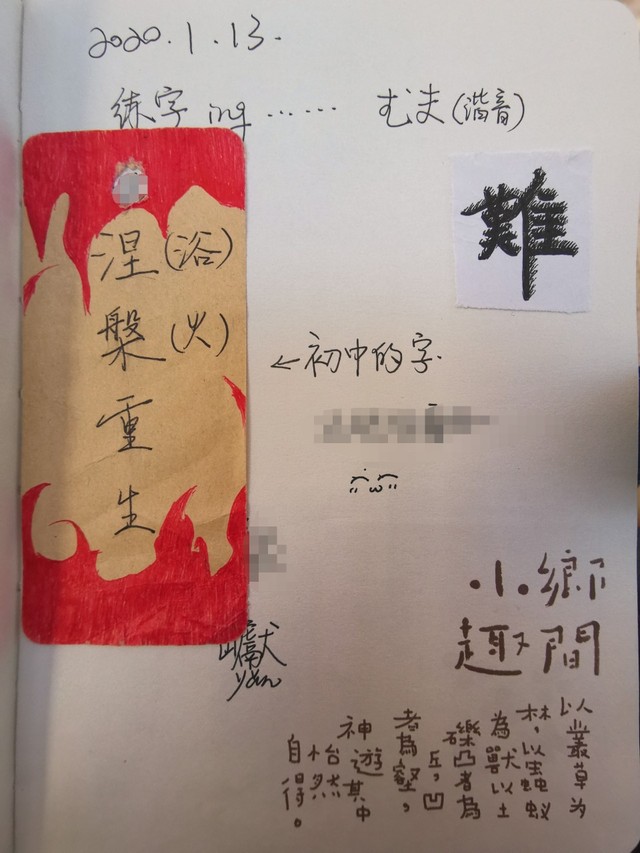 2020.1.13.
练字ing…… むま(谐音)
涅槃重生
(浴)(火)
難
←初中的字
巘
yan
鄉間
小趣
以叢草为
林，以蟲蚁
為獸以土
礫凸者為
丘，凹
者為壑，
神遊其中
怡然
自得。